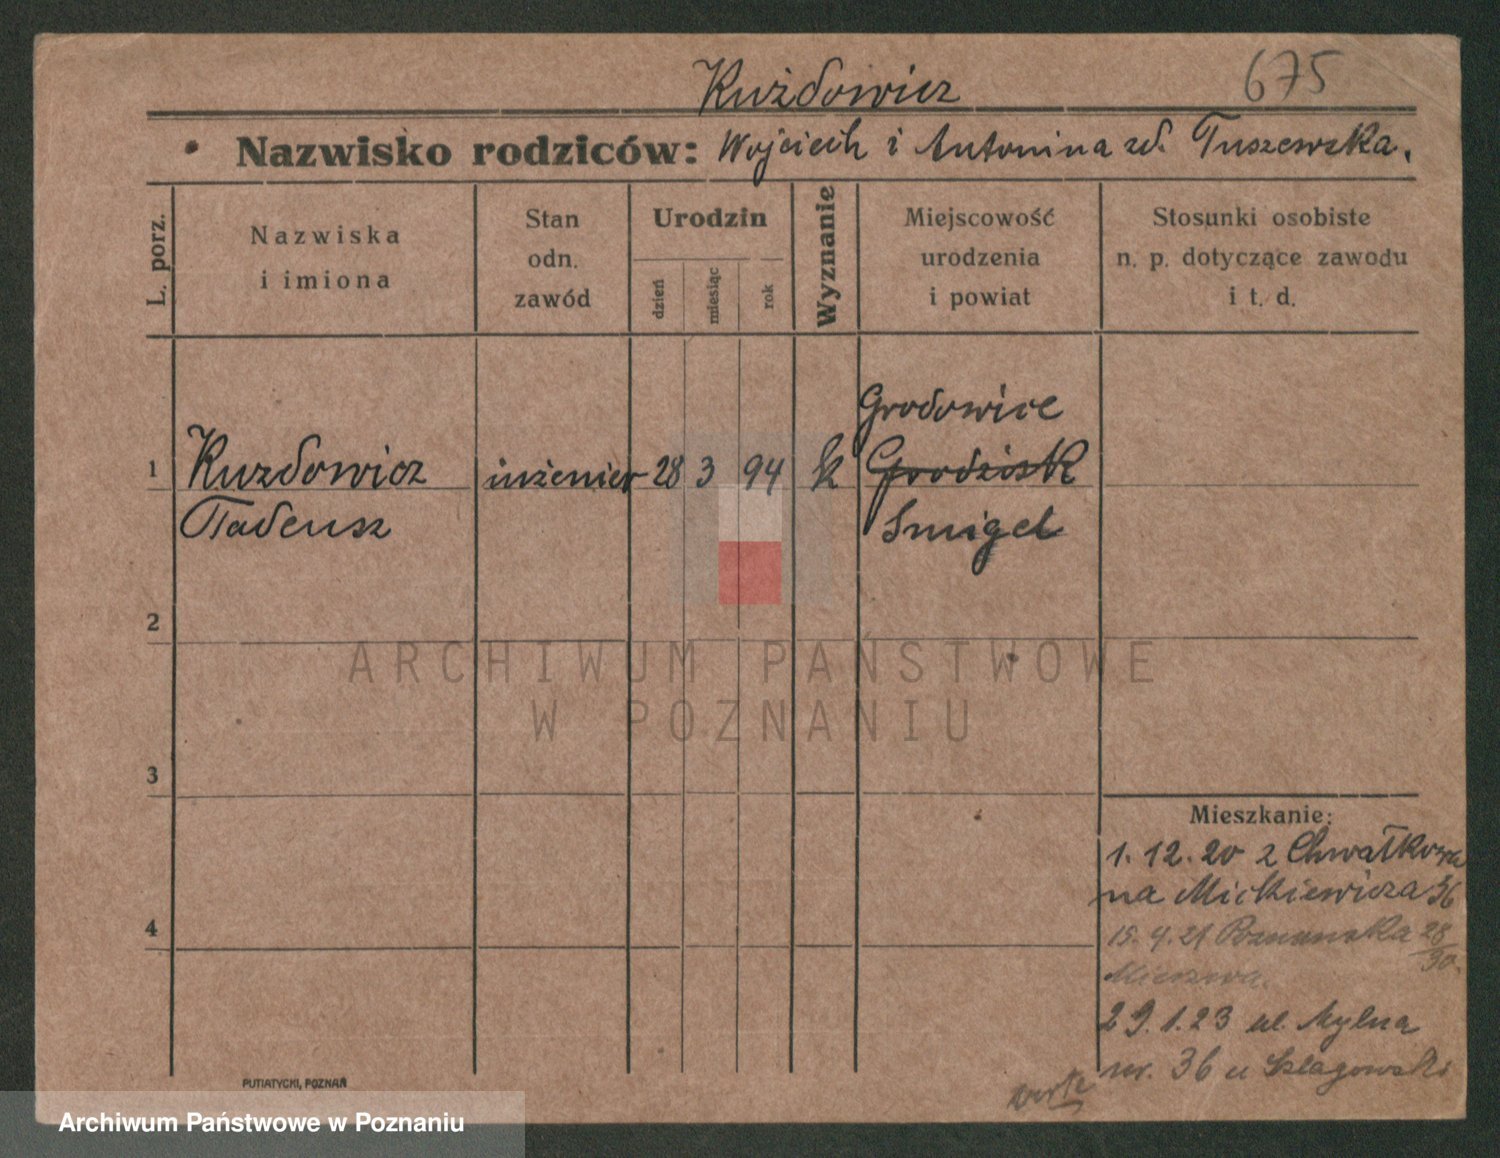 Kużdowicz 675
Nazwisko rodziców: Wojciech i Antonina zd. Tuszewska.
L. porz.
Nazwiska
i imiona
Stan
odn.
zawód
Urodzin
dzień
miesiąc
rok
Wyznanie
Miejscowość
urodzenia
i powiat
Stosunki osobiste
n. p. dotyczące zawodu
i t. d.
Grodowice
1 Kuzdowicz inżenier 28 3 94 k Grodzisk
Tadeusz Smigel
2
ARCHIWUM PAŃSTWOWE
W POZNANIU
3
Mieszkanie:
1. 12. 20 z Chwałkowa
na Mickiewicza 36
4
15. 4. 21 Poznańska 28/30.
29. 1. 23 ul. Mylna
nr. 36 u Szlagowski
verte
PUTIATYCKI, POZNAŃ
Archiwum Państwowe w Poznaniu